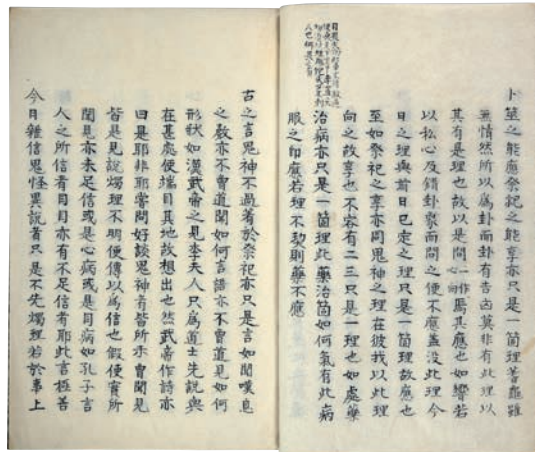 卜筮之能應祭祀之能享亦只是一箇理蓍龜雖
無情然所以爲卦而卦有吉凶莫非有此理以
其有是理也故以是問一作心向焉其應也如響若
以私心及錯卦象而問之便不應蓋没此理今
日之理與前日已定之理只是一箇理故應也
至如祭祀之享亦同鬼神之理在彼我以此理
向之故享也不容有二三只是一理也如處藥
治病亦只是一箇理此藥治箇如何氣有此病
服之即應若理不契則藥不應
古之言鬼神不過著於祭祀亦只是言如聞嘆息
之聲亦不曾道聞如何言語亦不曾道見如何
形狀如漢武帝之見李夫人只爲道士先説與
在甚處使端目其地故想出也然武帝作詩亦
曰是耶非耶嘗問好談鬼神者皆所未曾聞見
皆是見説燭理不明便傳以爲信也假使實所
聞見亦未足信或是心病或是目病如孔子言
人之所信者目目亦有不足信者耶此言極善
今日雜信鬼怪異説者只是不先燭理若於事上